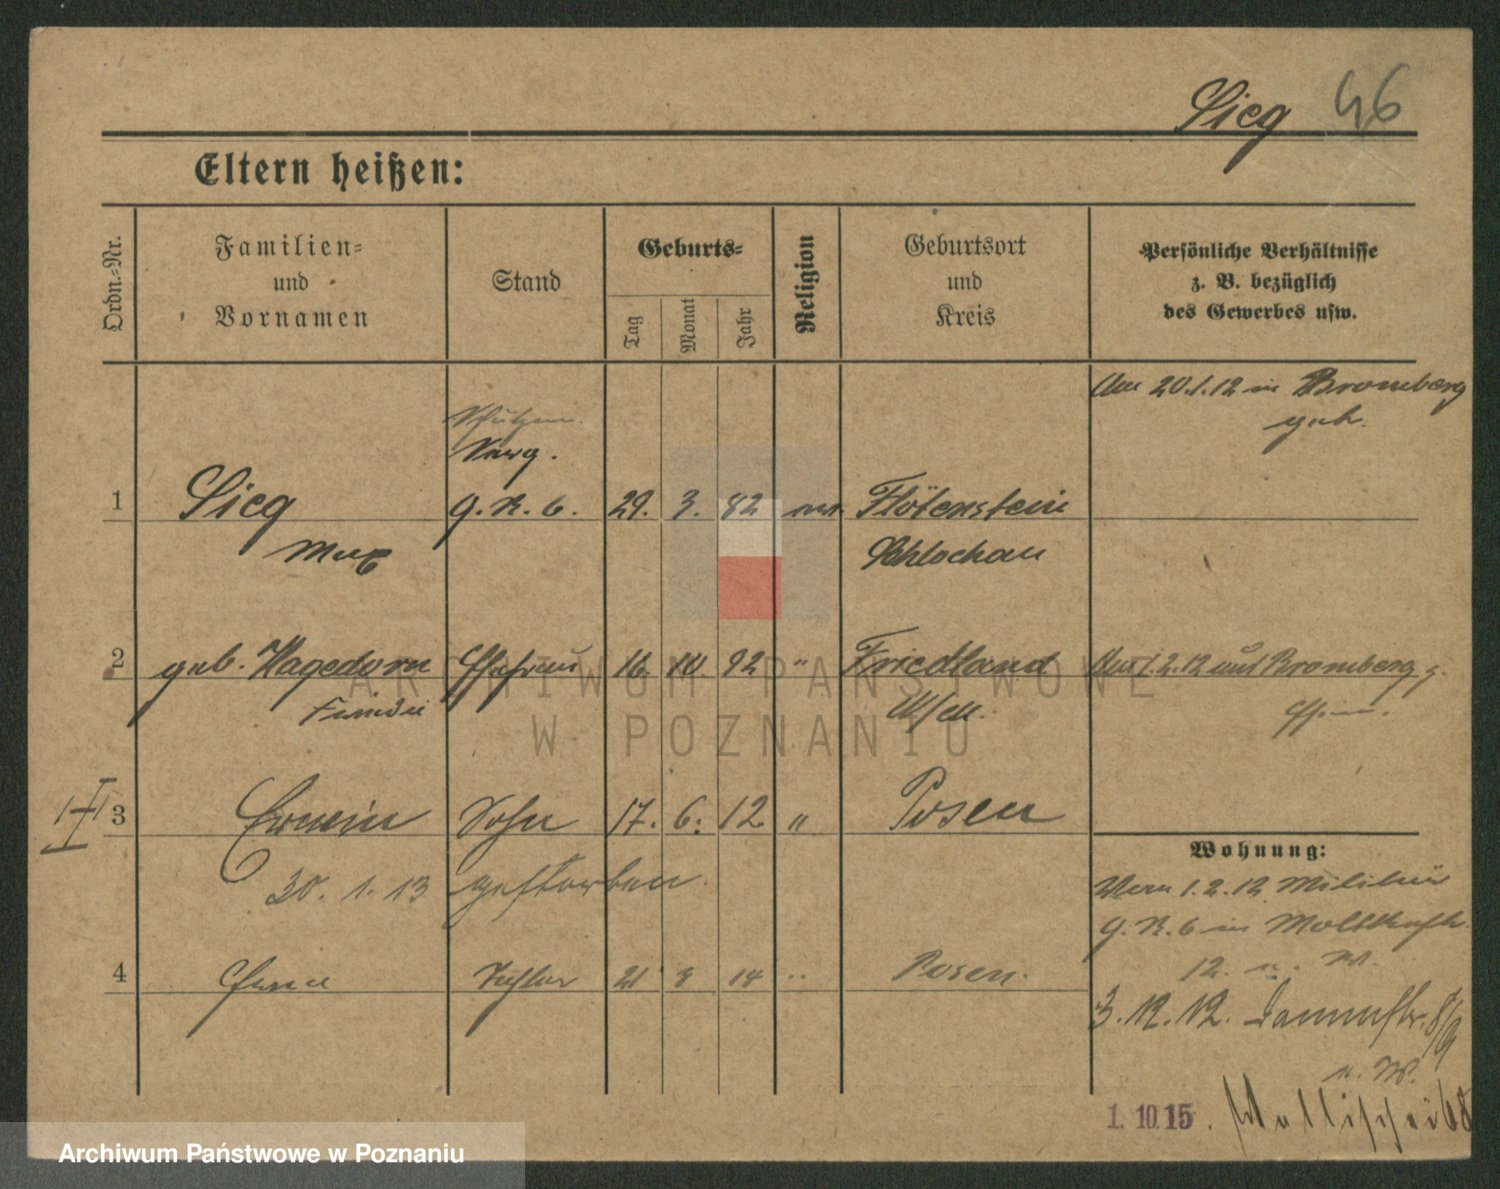 Sieg 46
Eltern heißen:
Ordn.-Nr.
Familien-
und
Vornamen
Stand
Geburts-
Tag
Monat
Jahr
Religion
Geburtsort
und
Kreis
Persönliche Verhältnisse
z. B. bezüglich
des Gewerbes usw.
Am 20.1.12 in Bromberg
geh.
Serg.
1 Sieg G. R. 6. 29. 3. 82 Flötenstein
Max Schlochau
2 geb. Hagedorn Ehefrau 16. 10. 92 " Friedland
Frieda
3 Erwin Sohn 17. 6. 12 " Posen
30. 1. 13 gestorben.
4 Erna Tochter 21 14 " Posen.
Wohnung:
1.2.12 Militär
G. R. 6 in Moltkestr.
12. n. W.
3. 12. 12. 8/9
n. W.
1. 10. 15. Wallischei 68
ARCHIWUM PAŃSTWOWE
W POZNANIU
Archiwum Państwowe w Poznaniu